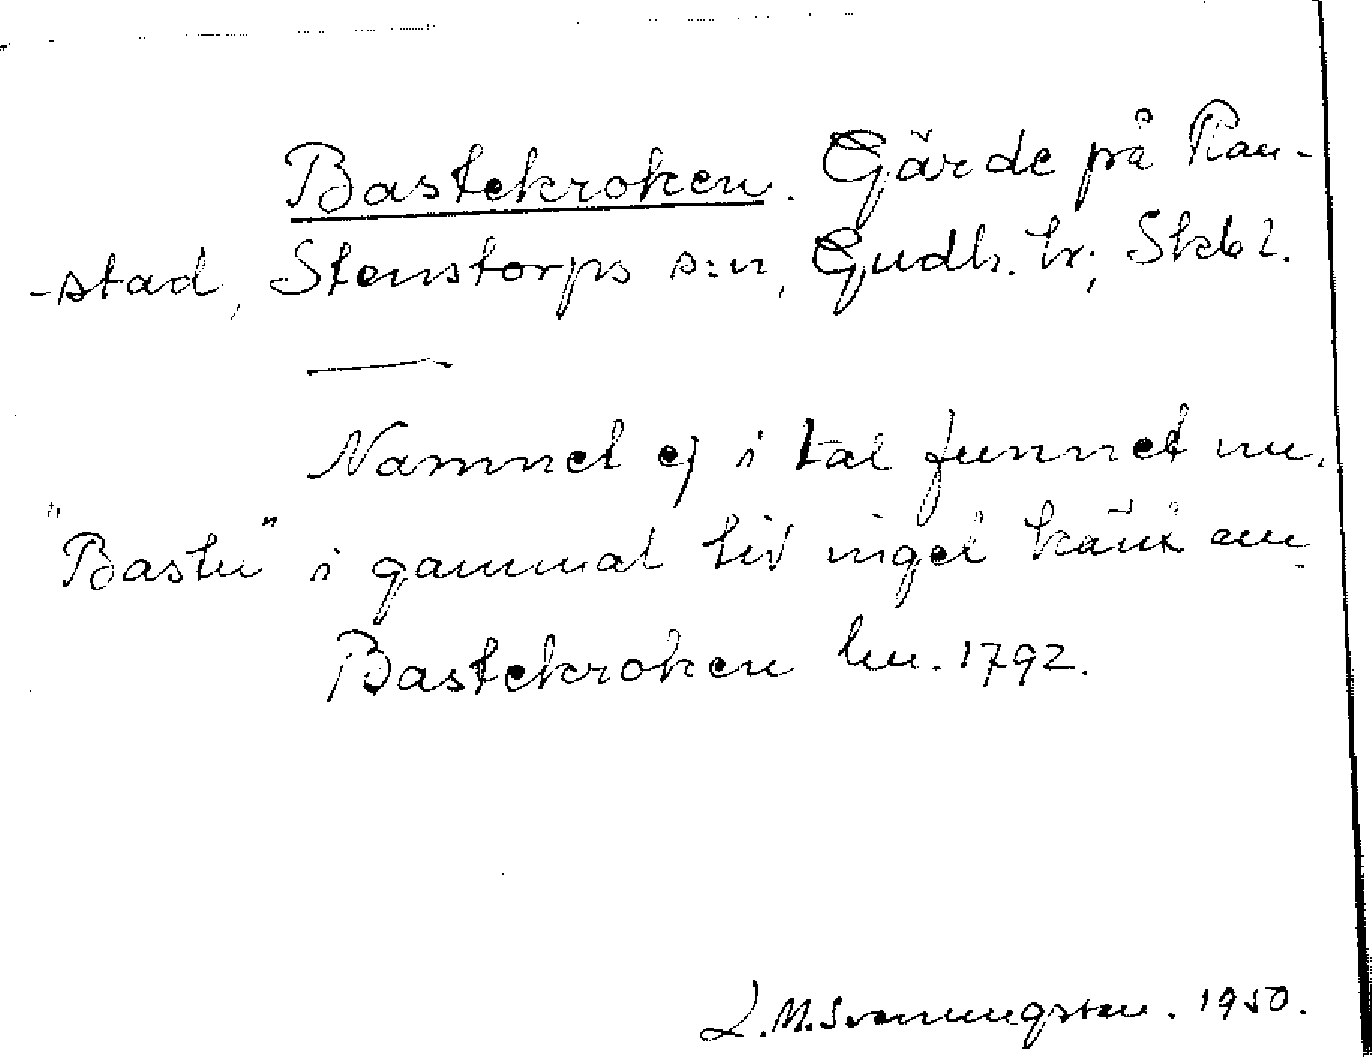 Bastekroken. Gärde på Ran-
-stad, Stenstorps s:n, Gudh. hr; Skbl.
Namnet ej i tal funnet nu.
"Bastu" i gammal tid inget känt om
Bastekroken hu. 1792.
L.M. Svenungsson. 1950.